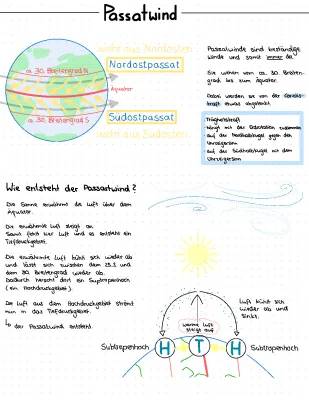 Passatwind
weht aus Nordosten
Nordostpassat
ca. 30. Breitengrad N
Äquator
ca. 30. Breitengrad S
Südostpassat
weht aus Südosten
Passatwinde sind beständige
Winde und somit immer da.
Sie wehen vom ca. 30. Breiten-
grad bis zum Äquator.
Dabei werden sie von der Coriolis-
kraft etwas abgelenkt.
Trägheitskraft
hängt mit der Erdrotation zusammen
auf der Nordhalbkugel gegen den
Uhrzeigersinn
auf der Südhalbkugel mit dem
Uhrzeigersinn
Wie entsteht der Passatwind?
Die Sonne erwärmt die Luft über dem
Äquator.
Die erwärmte Luft steigt an.
Somit fehlt hier Luft und es entsteht ein
Tiefdruckgebiet.
Die erwärmte Luft kühlt sich wieder ab
und lässt sich zwischen dem 25. und
dem 30. Breitengrad wieder ab.
Dadurch herrscht dort ein Suptropenhoch
(ein Hochdruckgebiet).
Die Luft aus dem Hochdruckgebiet strömt
nun in das Tiefdruckgebiet.
↳ der Passatwind entsteht.
Luft kühlt sich
wieder ab und
sinkt.
warme Luft
steigt auf
Subtropenhoch H T H Subtropenhoch